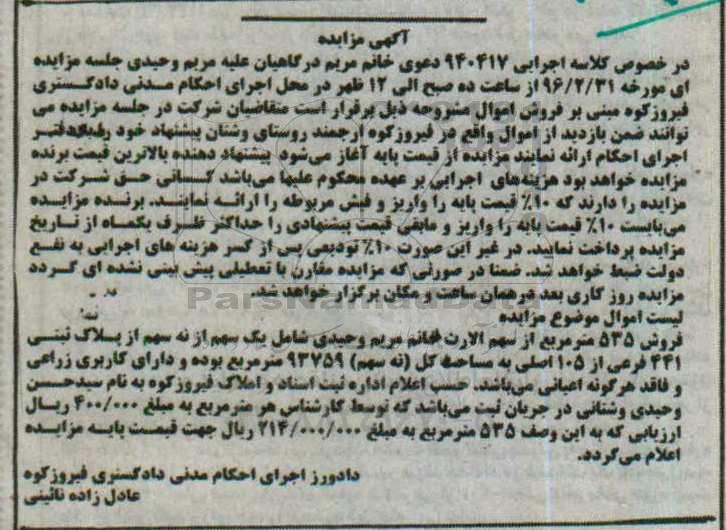 آگهی مزایده
در خصوص کلاسه اجرایی ۹۴۰۴۱۷ دعوی خانم مریم درگاهیان علیه مریم وحیدی جلسه مزایده
ای مورخه ۹۶/۲/۳۱ از ساعت ده صبح الی ۱۲ ظهر در محل اجرای احکام مدنی دادگستری
فیروزکوه مبنی بر فروش اموال مشروحه ذیل برقرار است متقاضیان شرکت در جلسه مزایده می
توانند ضمن بازدید از اموال واقع در فیروزکوه ارجمند روستای وشتان پیشنهاد خود را به دفتر
اجرای احکام ارائه نمایند مزایده از قیمت پایه آغاز می‌شود پیشنهاد دهنده بالاترین قیمت برنده
مزایده خواهد بود هزینه‌های اجرایی بر عهده محکوم علیها می‌باشد کسانی حق شرکت در
مزایده را دارند که ۱۰٪ قیمت پایه را واریز و فیش مربوطه را ارائه نمایند. برنده مزایده
می‌بایست ۱۰٪ قیمت پایه را واریز و مابقی قیمت پیشنهادی را حداکثر ظرف یکماه از تاریخ
مزایده پرداخت نمایید. در غیر این صورت ۱۰٪ تودیعی پس از کسر هزینه های اجرایی به نفع
دولت ضبط خواهد شد. ضمنا در صورتی که مزایده مقارن با تعطیلی پیش بینی نشده ای گردد
مزایده روز کاری بعد در همان ساعت و مکان برگزار خواهد شد.
ParsNamadData
لیست اموال موضوع مزایده
فروش ۵۳۵ مترمربع از سهم الارث خانم مریم وحیدی شامل یک سهم از نه سهم از پلاک ثبتی
۴۴۱ فرعی از ۱۰۵ اصلی به مساحت کل (نه سهم) ۹۳۷۵۹ مترمربع بوده و دارای کاربری زراعی
و فاقد هرگونه اعیانی می‌باشد. حسب اعلام اداره ثبت اسناد و املاک فیروزکوه به نام سیدحسن
وحیدی وشتانی در جریان ثبت می‌باشد که توسط کارشناس هر مترمربع به مبلغ ۴۰۰/۰۰۰ ریال
ارزیابی که به این وصف ۵۳۵ مترمربع به مبلغ ۲۱۴/۰۰۰/۰۰۰ ریال جهت قیمت پایه مزایده
اعلام می‌گردد.
دادورز اجرای احکام مدنی دادگستری فیروزکوه
عادل زاده نائینی